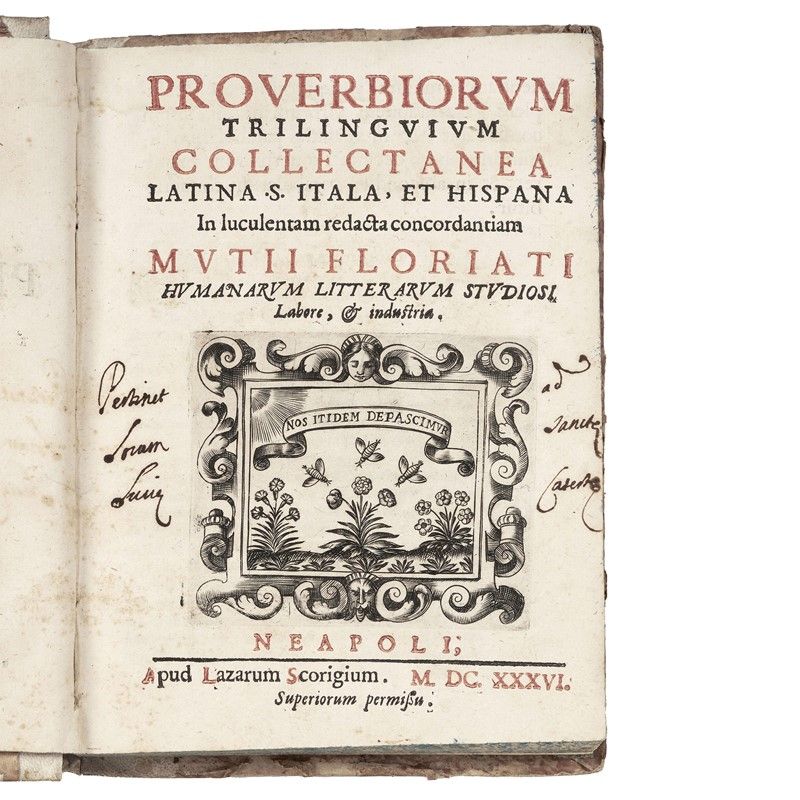 PROVERBIORVM
TRILINGVIVM
COLLECTANEA
LATINA .S. ITALA, ET HISPANA
In luculentam redacta concordantiam
MVTII FLORIATI
HVMANARVM LITTERARVM STVDIOSI,
Labore, & industria.
NOS ITIDEM DEPASCIMVR
Pertinet
ad
Locum
Sanctę
NEAPOLI;
Apud Lazarum Scorigium. M. DC. XXXVI.
Superiorum permissu.